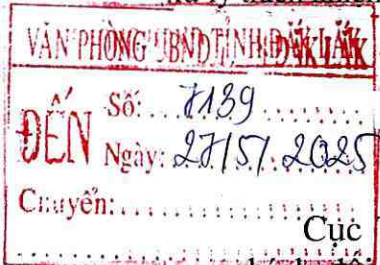 VĂN PHÒNG UBND TỈNH ĐẮK LẮK
ĐẾN
Số: 7139
Ngày: 27/5/2025
Chuyển:
Cục